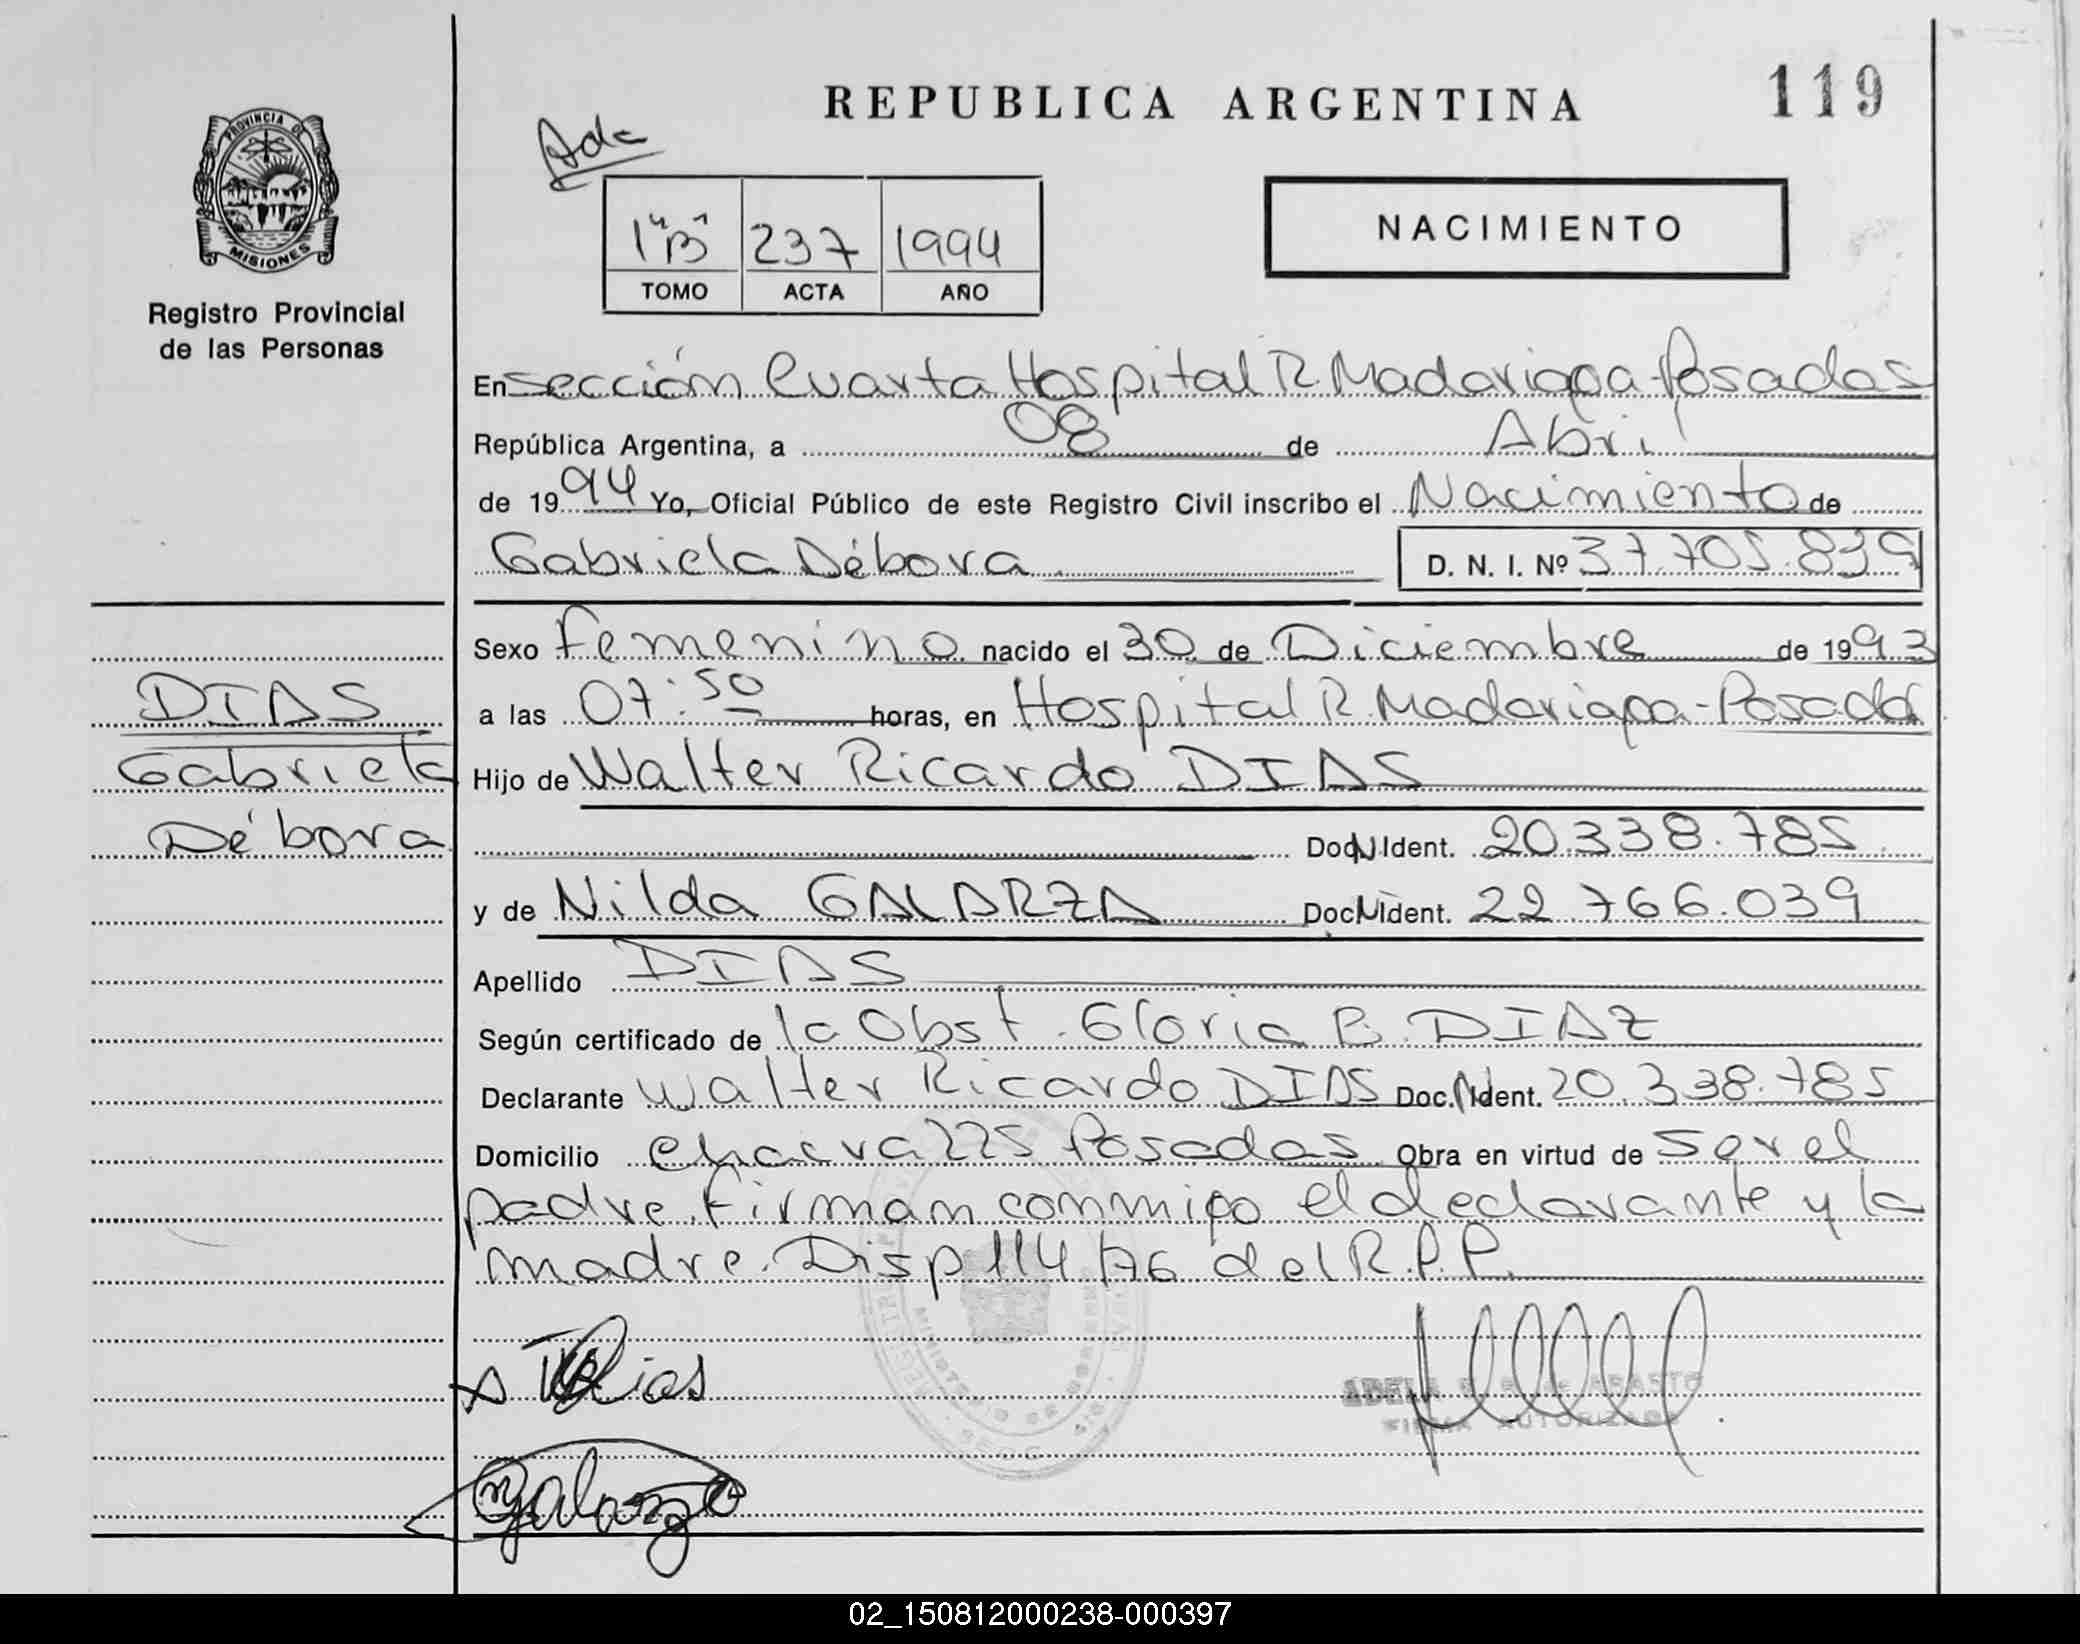 REPUBLICA ARGENTINA
119
Ada
PROVINCIA DE
MISIONES
Registro Provincial
de las Personas
1º "B" 237 1994
TOMO ACTA AÑO
NACIMIENTO
En sección Cuarta Hospital R. Madariaga - Posadas
República Argentina, a 08 de Abril
de 1994 Yo, Oficial Público de este Registro Civil inscribo el Nacimiento de
Gabriela Débora D. N. I. Nº 37.705.839
Sexo Femenino nacido el 30 de Diciembre de 1993
a las 07:50 horas, en Hospital R. Madariaga - Posadas
Hijo de Walter Ricardo DIAS
Doc.N.Ident. 20.338.785
y de Nilda GALARZA Doc.N.Ident. 22.766.039
Apellido DIAS
Según certificado de la Obst. Gloria B. DIAZ
Declarante Walter Ricardo DIAS Doc.N.Ident. 20.338.785
Domicilio chacra 225 Posadas Obra en virtud de ser el
padre. Firman conmigo el declarante y la
madre. Disp 114/76 del R.P.P.
DIAS
Gabriela
Débora
Dias
Galarza
ADELA
FIRMA AUTORIZADA
MINISTERIO DE GOBIERNO
02_150812000238-000397